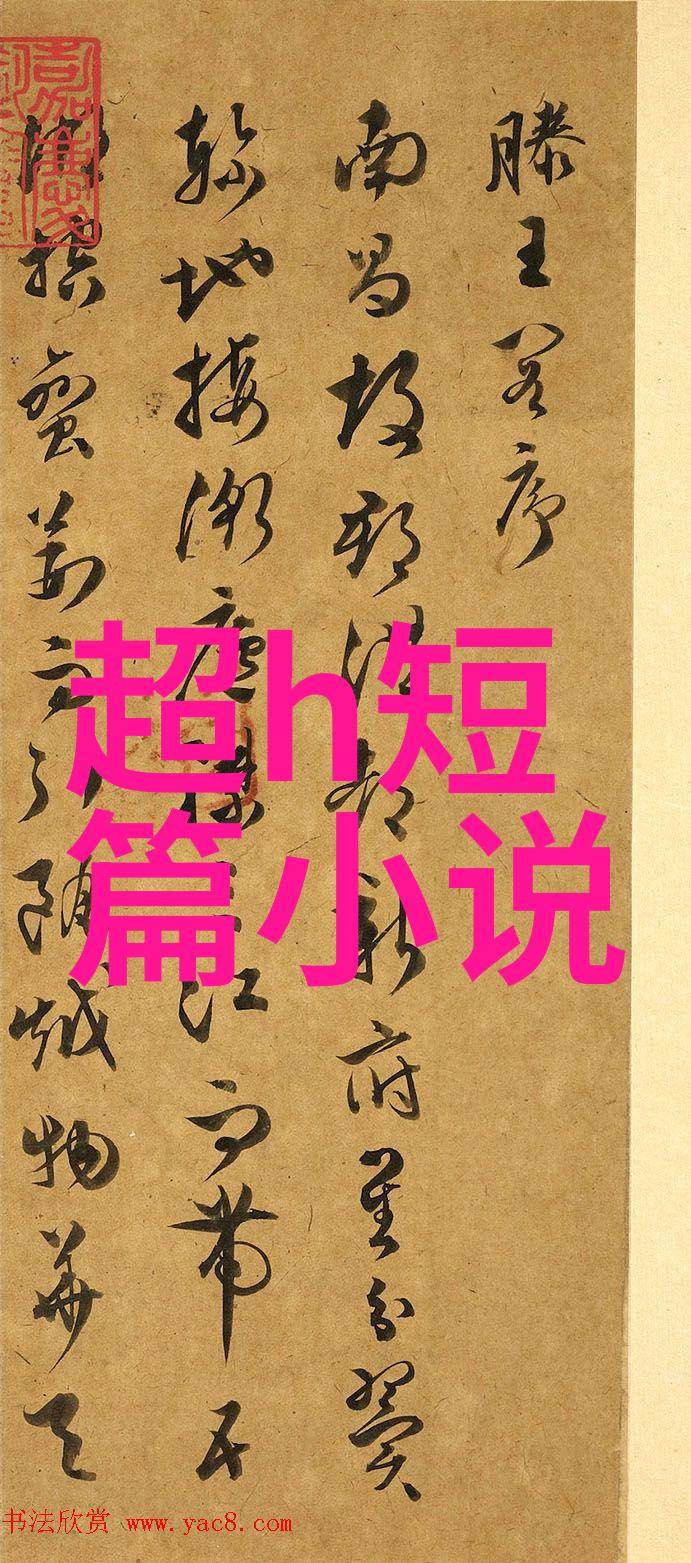 滕王閣序
南昌故郡洪都新府星分翼
軫地接衡廬襟三江而帶五
湖控蠻荊而引甌越物華天
超h短
篇小说
书法欣赏 www.yac8.com